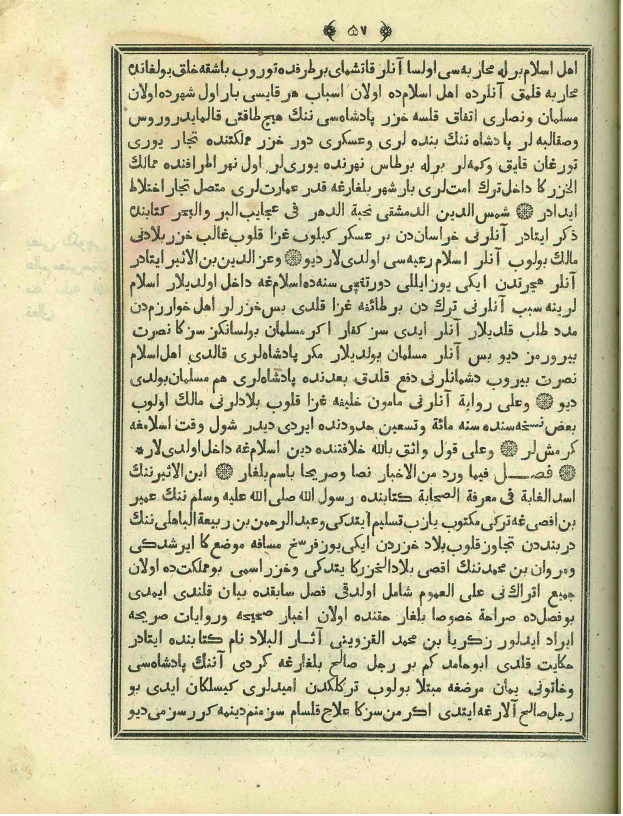 ﴿ ٥٧ ﴾
اهل اسلام برله محاربه‌سی اولسا آنلر قاتشمای بر طرفده توروب باشقه خلق بولغاندن
محاربه قلمق آنلرده اهل اسلام‌ده اولان اسباب هر قایسی بار اول شهرده اولان
مسلمان ونصاری اتفاق قلسه خزر پادشاه‌سی ننك هیچ طاقتی قالمایدر وروس
وصقالبه لر پادشاه ننك بنده لری وعسکری دور خزر مملکتنده تجار یوری
تورغان قایق وکمه‌لر برله برطاس نهرنده یوری‌لر اول نهر اطرافنده ممالك
الخزرکا داخل ترك امت‌لری بار شهر بلغارغه قدر عمارت‌لری متصل تجار اختلاط
ایدادر ۞ شمس الدین الدمشقی نخبة الدهر فی عجایب البر والبحر کتابنده
ذکر ایتادر آنلرنی خراسان‌دن بر عسکر کیلوب غزا قلوب غالب خزر بلادنی
مالك بولوب آنلار اسلام رعیه‌سی اولدی‌لار دیو ۞ وعز الدین بن الاثیر ایتادر
آنلار هجرتدن ایکی یوز ایللی دورتنچی سنه‌ده اسلام‌غه داخل اولدیلار اسلام
لرینه سبب آنلارنی ترك دن بر طائفه غزا قلدی بس خزرلر اهل خوارزم‌دن
مدد طلب قلدیلار آنلار ایدی سز کفار اکر مسلمان بولسانکز سزکا نصرت
بیرورمز دیو بس آنلار مسلمان بولدیلار مکر پادشاه‌لری قالدی اهل اسلام
نصرت بیروب دشمانلرنی دفع قلدق بعدنده پادشاه‌لری هم مسلمان بولدی
دیو ۞ وعلی روایة آنلارنی مامون خلیفه غزا قلوب بلادلرنی مالك اولوب
بعض نسخه‌سنده سنه مائة وتسعین حدودنده ایردی دیدر شول وقت اسلامغه
کرمش‌لر ۞ وعلی قول واثق بالله خلافتنده دین اسلام‌غه داخل اولدی‌لار *
۞ فصـــل فیما ورد من الاخبار نصا وصریحا باسم بلغار ۞ ابن الاثیر ننك
اسد الغابة فی معرفة الصحابة کتابنده رسول الله صلی الله علیه وسلم ننك عمیر
بن افصی‌غه ترکی مکتوب یازب تسلیم ایتدکی وعبد الرحمن بن ربیعة الباهلی ننك
دربنددن تجاوز قلوب بلاد خزردن ایکی یوز فرسخ مسافه موضع‌کا ایرشدکی
ومروان بن محمد ننك اقصی بلاد الخزرکا یتدکی وخزر اسمی بو مملکت‌ده اولان
جمیع اتراك نی علی العموم شامل اولدقی فصل سابقده بیان قلندی ایمدی
بو فصل‌ده صراحة خصوصا بلغار حقنده اولان اخبار صحیحه وروایات صریحه
ایراد ایدلور زکریا بن محمد القزوینی آثـار البلاد نام کتابنده ایتادر
حکایت قلدی ابو حامد کم بر رجل صالح بلغارغه کردی آننك پادشاه‌سی
وخاتونی یمان مرضغه مبتلا بولوب ترکلکدن امیدلری کیسلکان ایدی بو
رجل صالح آلارغه ایتدی اکر من سزکا علاج قلسام سز منم دینمه کررسزمی دیو